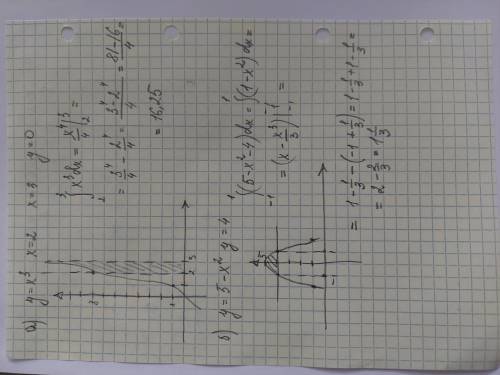 а) y = x³ x = 2 x = 3 y = 0
∫₂³ x³dx = x⁴/4 |₂³ =
= 3⁴/4 - 2⁴/4 = (3⁴-2⁴)/4 = (81-16)/4 =
= 16,25
8
1
2
3
б) y = 5 - x² y = 4
∫₋₁¹ (5-x²-4)dx = ∫₋₁¹ (1-x²)dx =
= (x - x³/3) |₋₁¹ =
= 1 - 1/3 - (-1 + 1/3) = 1 - 1/3 + 1 - 1/3 =
= 2 - 2/3 = 1 1/3
5
-1
1